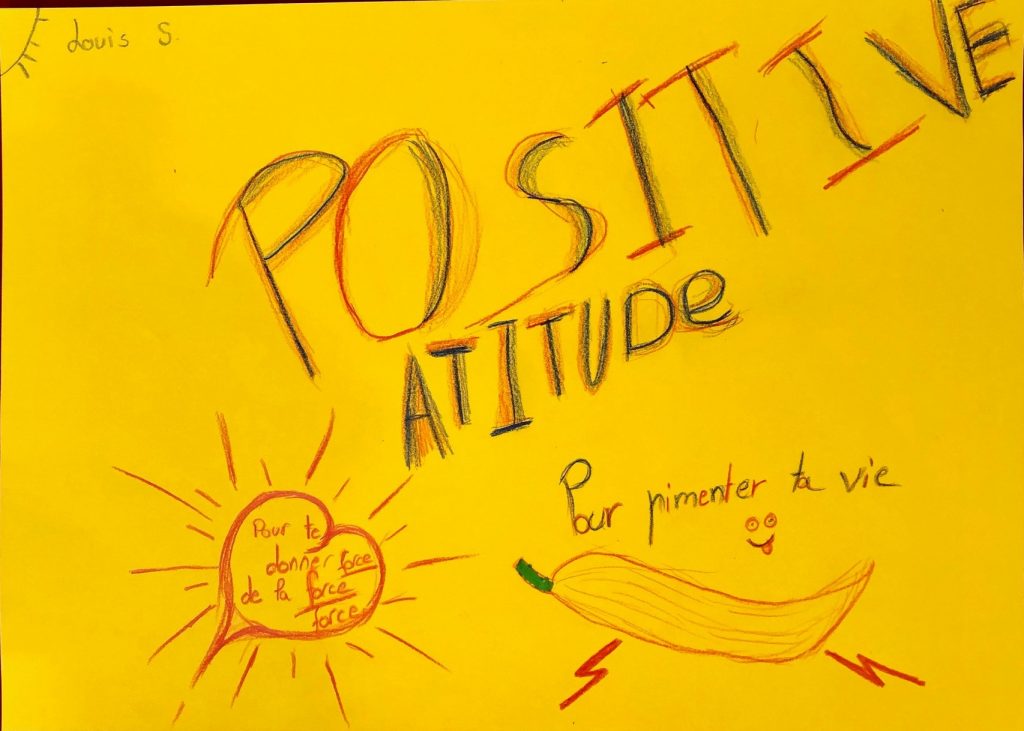 Louis S.
POSITIVE
ATITUDE
Pour te
donner force
de la force
force
Pour pimenter ta vie